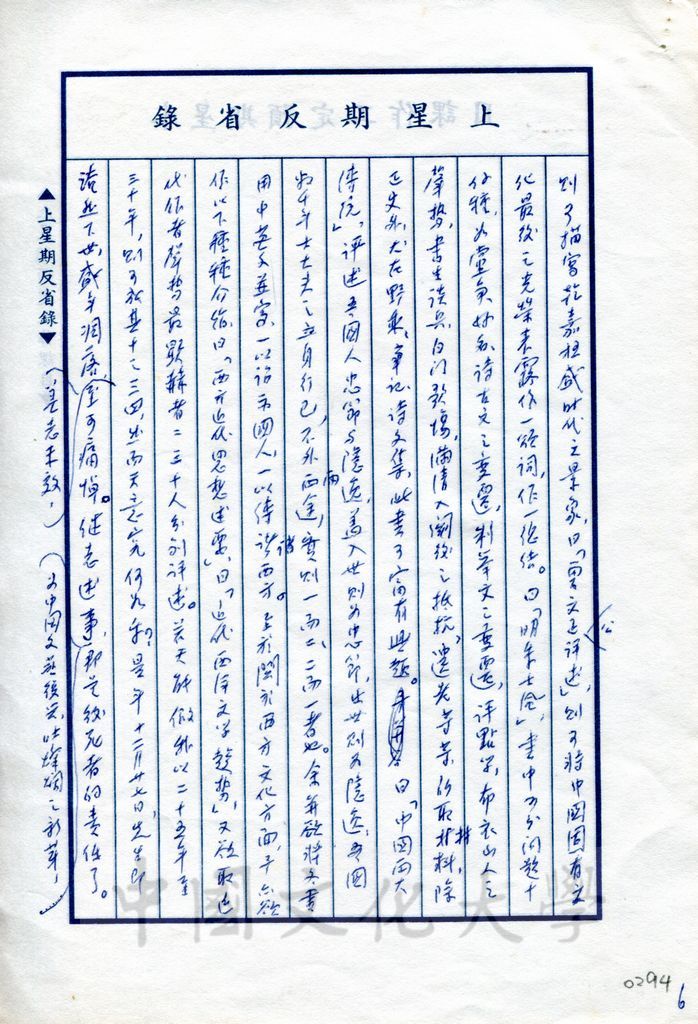 上星期反省錄
則可描寫乾嘉極盛時代之景象,曰「曾文正公評述」,則可將中國固有文
化最後之光榮表露作一頌詞,作一總結。曰「明末士風」,書中可分問題十
餘種,如靈魚妙句詩古文之變遷,制舉文之變遷,評點學,布衣山人之
聲勢,書生談兵,白門歌場,滿清入關後之抵抗,遺老等等,所取材料,除
正史外,尤在野乘、筆記、詩文集,此書可富有興趣。曰「中國兩大
傳統」,評述吾國人忠節與隱逸,蓋入世則為忠節,出世則為隱逸,吾國
數千年士大夫之立身行己,不外兩途,實則一而二,二而一者也。余並欲將各書
用中英文並寫,一以詔示國人,一以傳諸西方。至於關於西方文化方面,予亦欲
作以下種種介紹,曰「西方近代思想述要」,曰「近代西洋文學趨勢」,又欲取近
代作者聲勢最顯赫者二三十人分別評述。若天能假我以二十五年至
三十年,則可成其十之三四,然而天意究何如乎?是年十二月廿七日先生即
溘然下世,盛年凋落,金可痛悼。繼志述事,那是後死者的責任了。
(并志未敢,)
為中國文藝復興,吐燦爛之新芽,
▲上星期反省錄▼
中國文化大學
0294
6